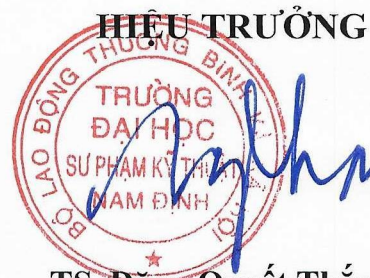 HIỆU TRƯỞNG
BỘ LAO ĐỘNG THƯƠNG BINH VÀ XÃ HỘI
TRƯỜNG
ĐẠI HỌC
SƯ PHẠM KỸ THUẬT
NAM ĐỊNH